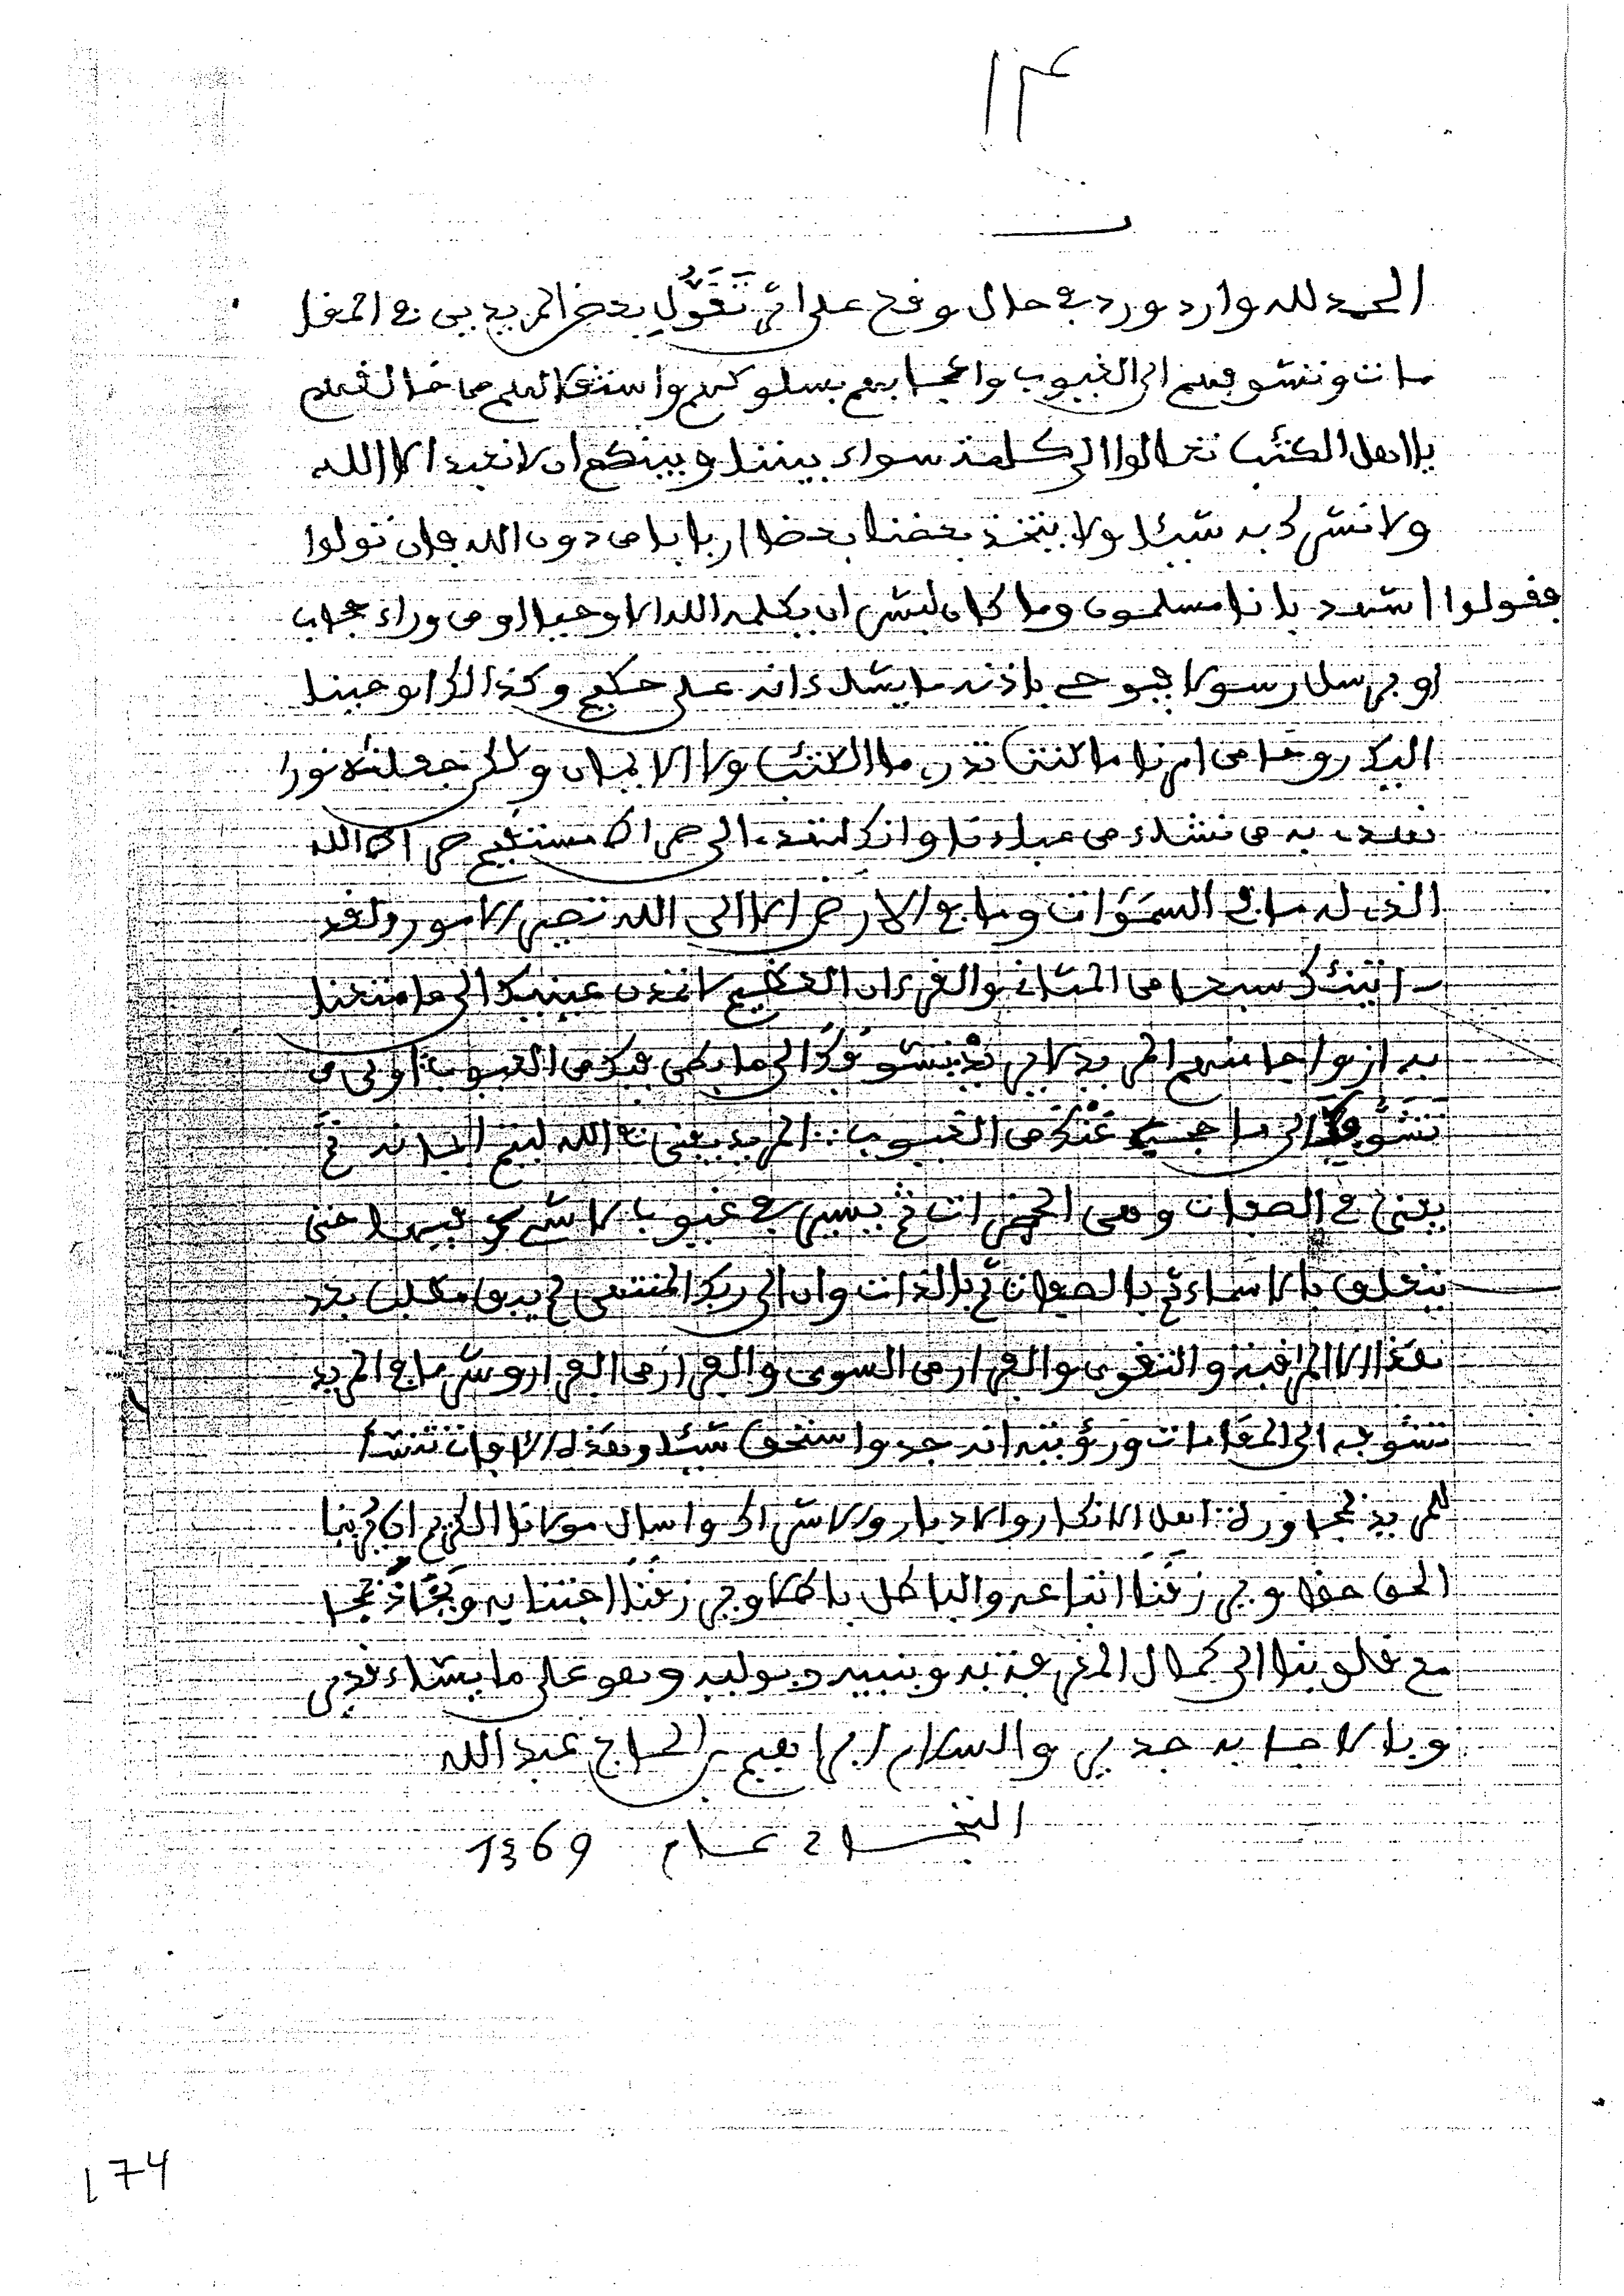 ١٣
الحمد لله وارد ورد في حال وقع على اثر تَقَوُّلِ بعض المريدين في المقا
مات وتشوفهم الى الغيوب واعجابهم بسلوكهم واستنقاصهم من خالفهم
يا اهل الكتٰب تعالوا الى كلمة سواء بيننا وبينكم ان لا نعبد الا الله
ولا نشرك به شيئا ولا يتخذ بعضنا بعضا اربابا من دون الله فان تولوا
فقولوا اشهد بانا مسلمون وما كان لبشر ان يكلمه الله الا وحيا او من وراء حجاب
او يرسل رسولا فيوحي باذنه ما يشاء انه علي حكيم وكذالك اوحينا
اليك روحا من امرنا ما كنت تدري ما الكتٰب ولا الايمان ولكن جعلنٰه نورا
نهدي به من نشاء من عبادنا وانك لتهدي الى صراط مستقيم صراط الله
الذي له ما في السمٰوات وما في الارض الا الى الله تصير الامور ولقد
ءاتينٰك سبعا من المثاني والقرءان العظيم لا تمدن عينيك الى ما متعنا
به ازواجا منهم المريد لا يريد تشوفك الى ما بطن فيك من العيوب اولى من
تشوفك الى ما حجب عنك من الغيوب المريد يفنى في الله ليتم ايمانه ثم
يفنى في الصفات وهي الحضرات ثم يسير في غيوب لا شرك فيها حتى
يتعلق بالاسماء ثم بالصفات ثم بالذات وان الى ربك المنتهى لم يبق مطلب بعد
هذا الا المراقبة والتقوى والفرار من السوى والفرار من الفرار وشر ما في المريد
تشوفه الى المقامات ورؤيته انه جد واستحق شيئا وهذه الافات تنشأ
للمريد لمجاورة اهل الانكار والادبار والاشراك واسال مولانا الكريم ان يرينا
الحق حقا ويرزقنا اتباعه والباطل باطلا ويرزقنا اجتنابه و
مع قلوبنا الى كمال المعرفة به وبنبيه وبوليه وهو على ما يشاء قدير
وبالاجابة جدير والسلام ابراهيم بن الحاج عبد الله
عام 1369
174